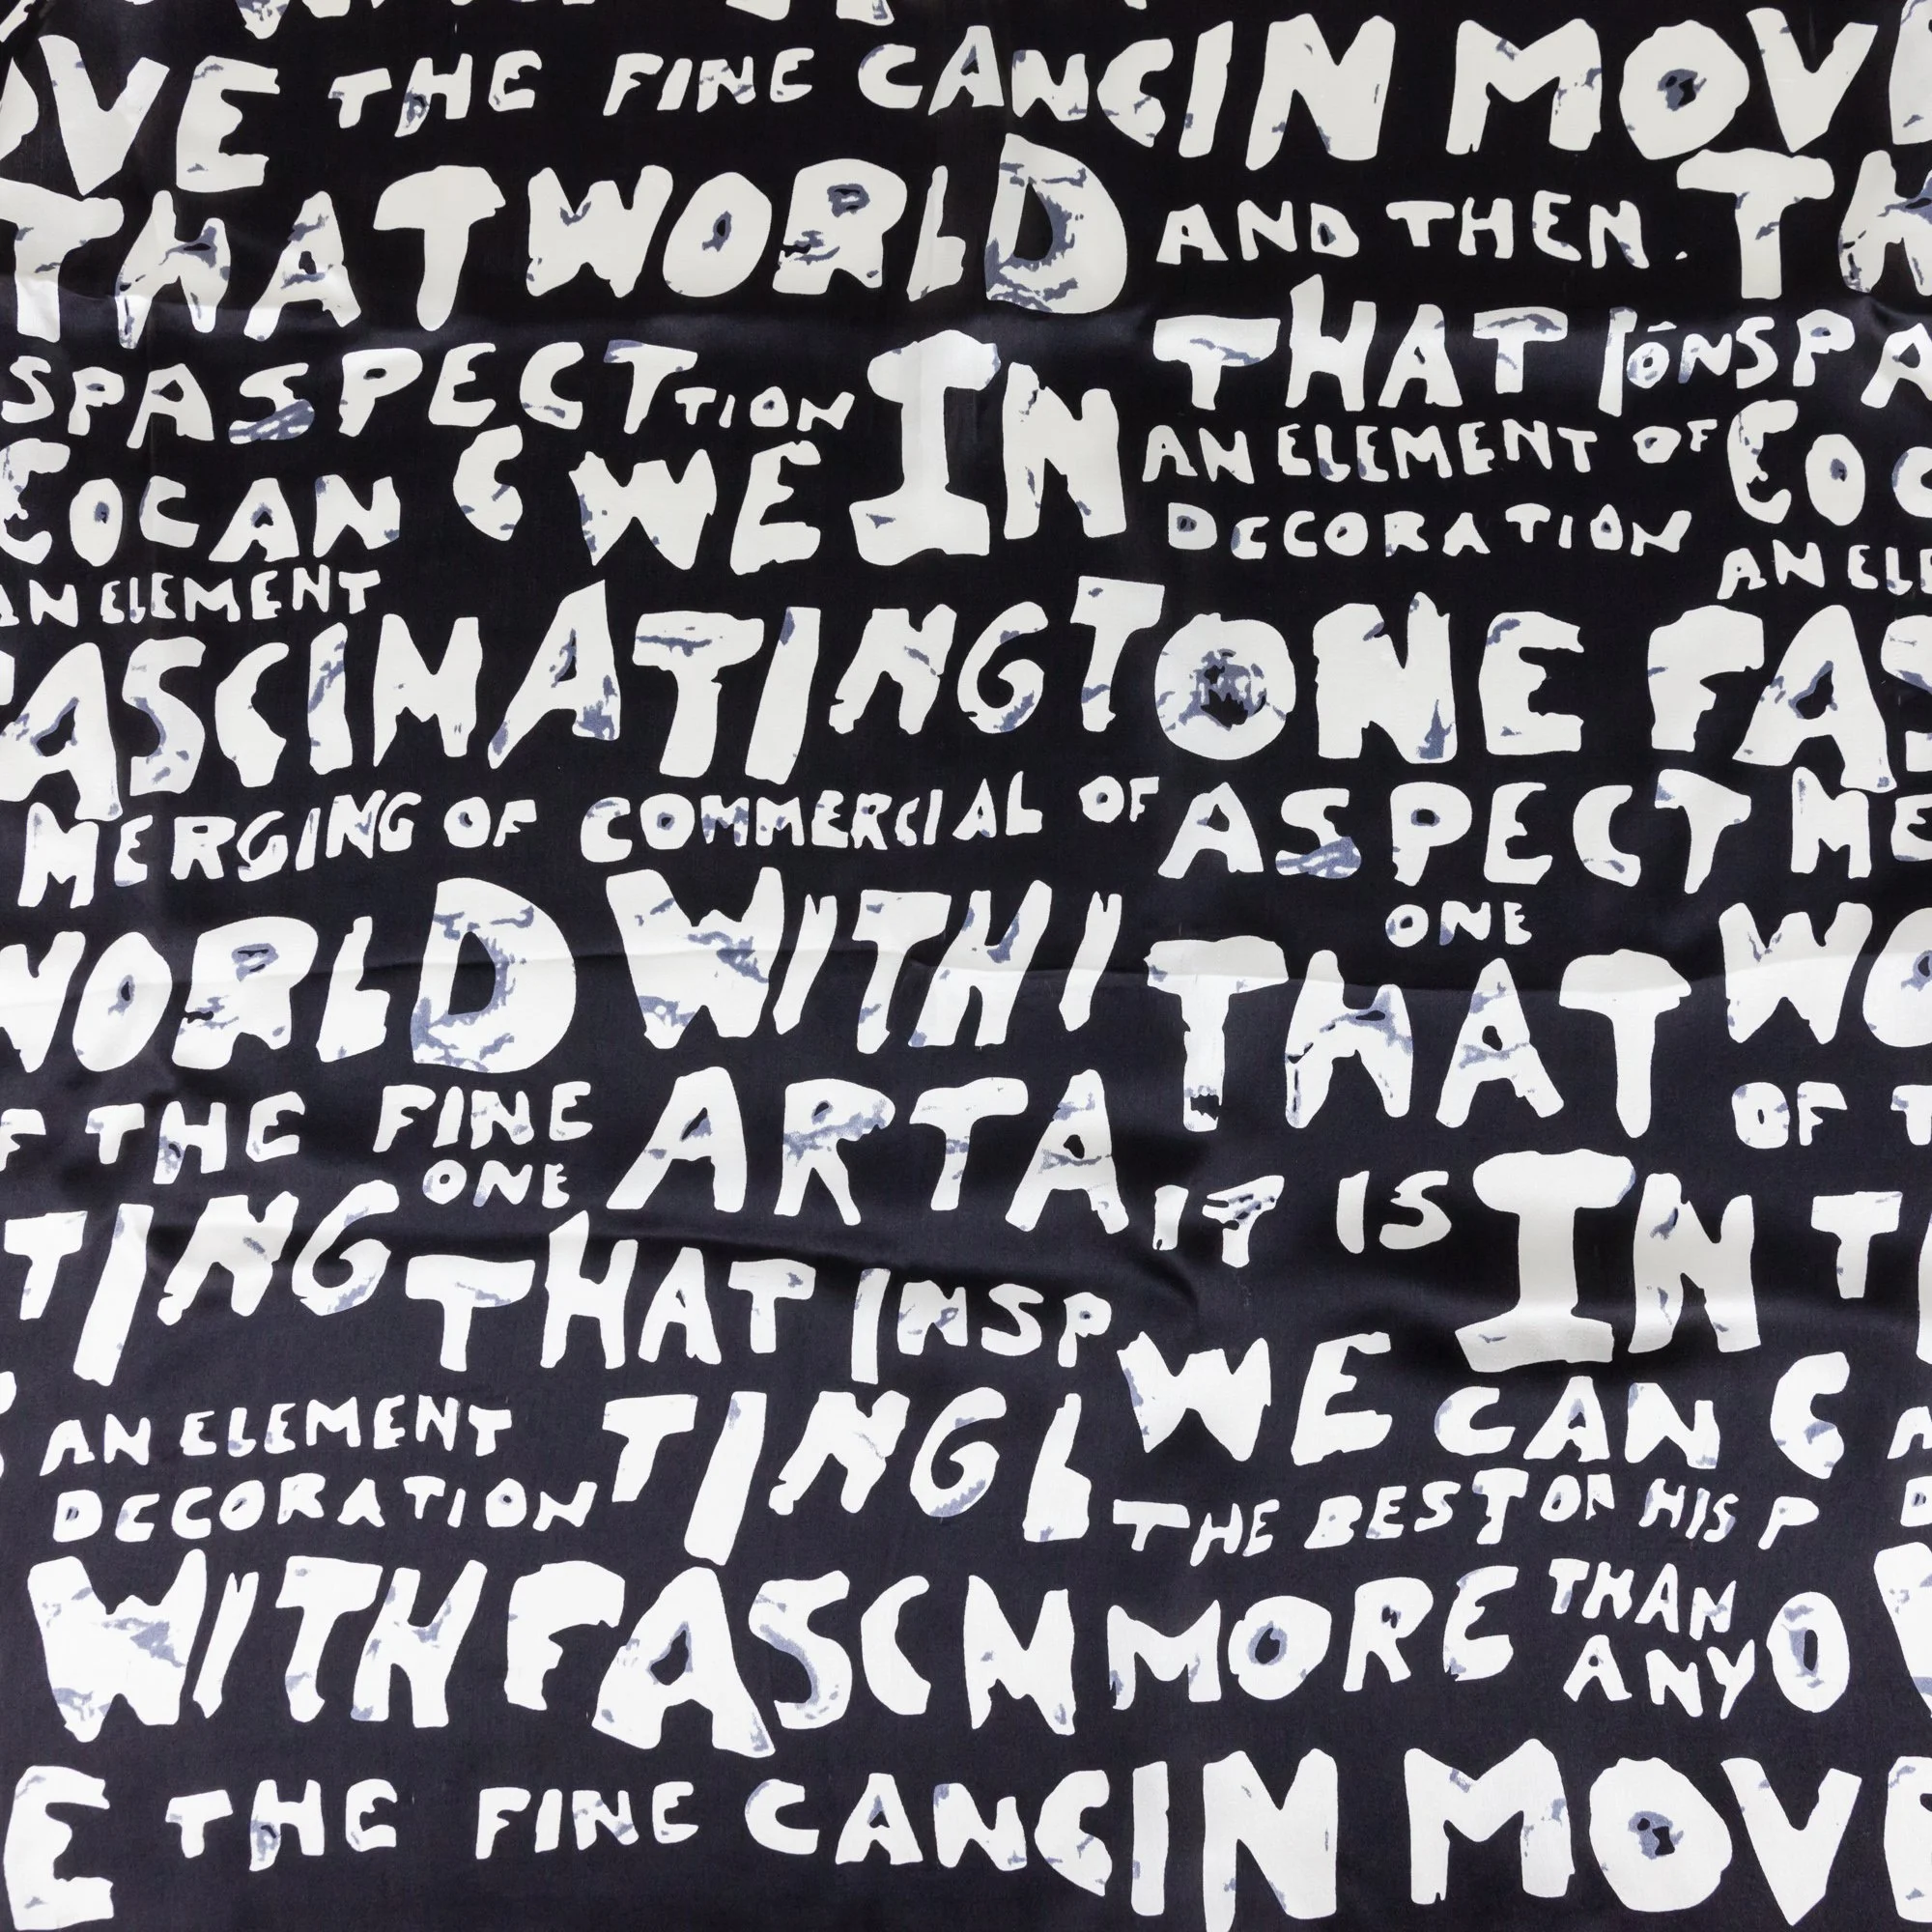 OVE THE FINE CANCIN MOVE
THAT WORLD AND THEN. TH
THAT IONSPA
SPASPECTTION IN
AN ELEMENT OF
EOCAN C WE EOC
DECORATION
AN ELEMENT AN ELE
FASCINATING TONE FAS
MERGING OF COMMERCIAL OF ASPECT ME
ONE
WORLD WITHI THAT WO
F THE FINE ARTA OF T
ONE
TING IT IS IN TI
THAT INSP
WE CAN C
AN ELEMENT TINGL
DECORATION THE BEST OF HIS P
WITH FASCN MORE THAN O
ANY
E THE FINE CANCIN MOVE